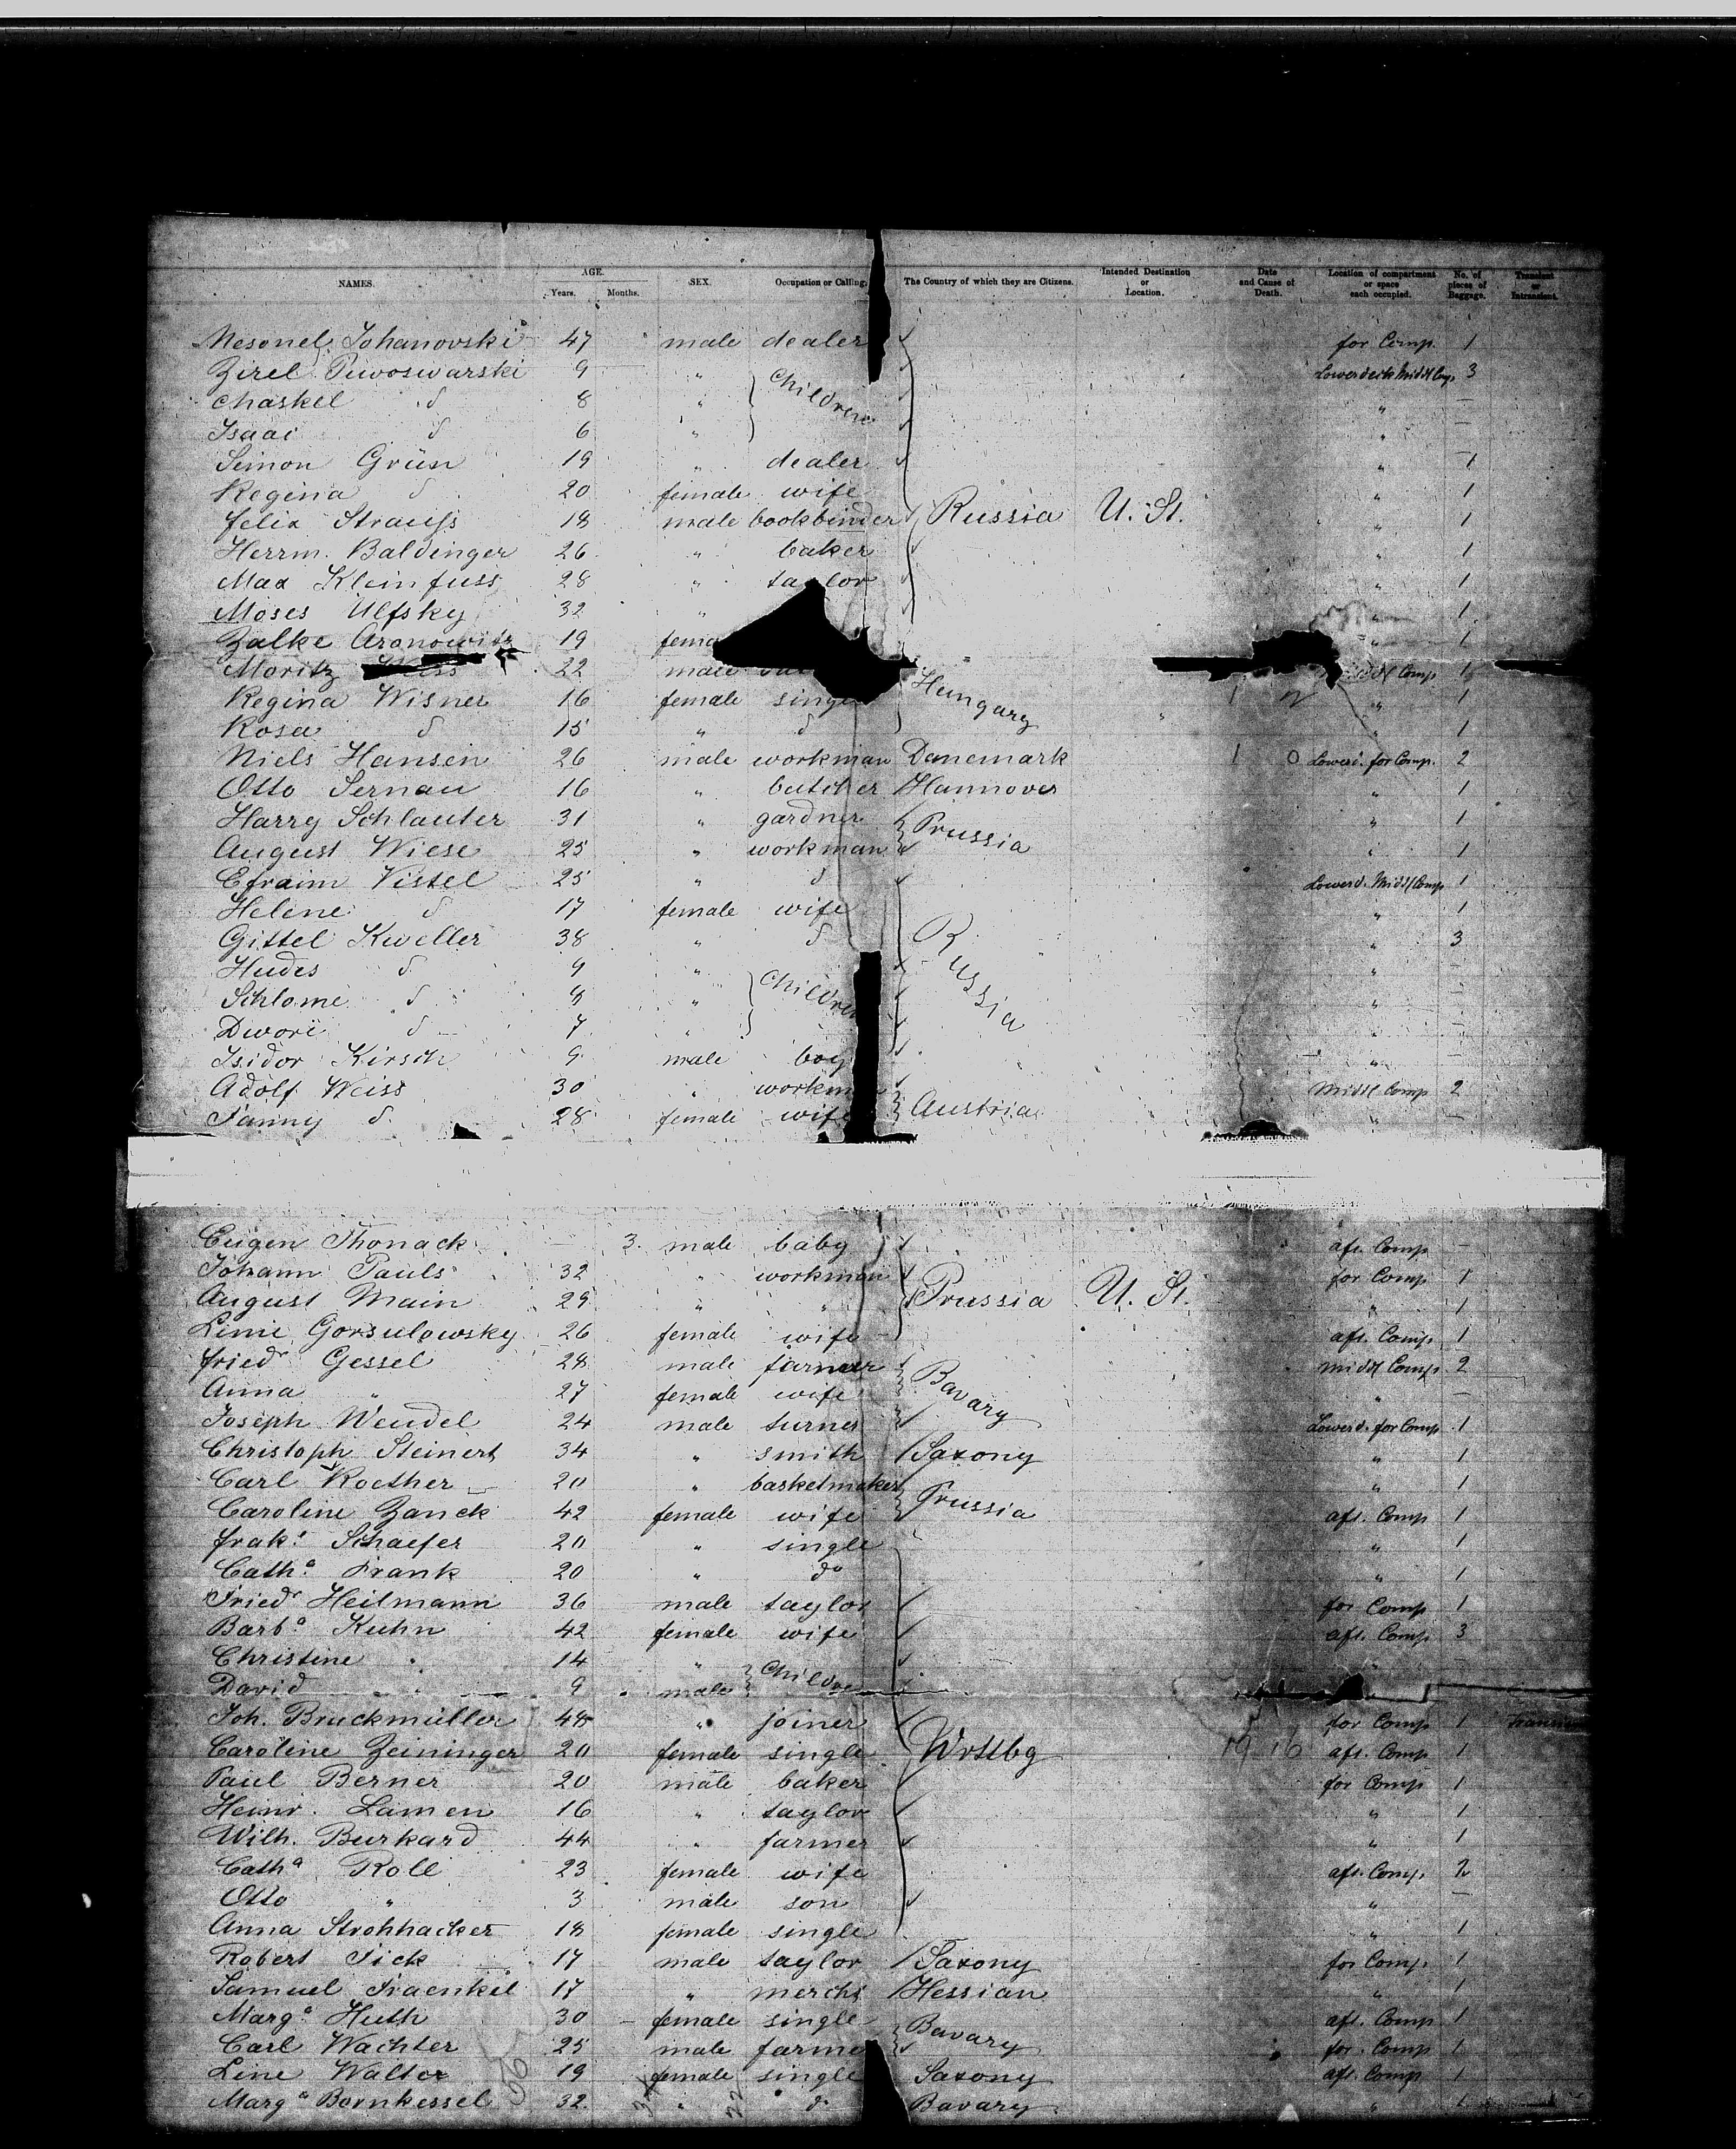 NAMES. AGE. Years. Months. SEX. Occupation or Calling. The Country of which they are Citizens. Intended Destination or Location. Date and Cause of Death. Location of compartment or space each occupied. No. of pieces of Baggage. Transient or Intransient.
Mesonel Johanovski 47 male dealer for Comp. 1
Zirel Piwoswarski 9 " Children Lowerdeck Middl Comp. 3
Chaskel d 8 " " —
Isaai d 6 " " —
Simon Grün 19 " dealer " 1
Regina d 20 female wife " 1
Felix Strauss 18 male bookbinder Russia U. St. " 1
Herrm. Baldinger 26 " baker " 1
Max Kleinfuss 28 " taylor " 1
Moses Ulfsky 32 " " 1
Zalke Aronowitz 19 fema " 1
Moritz 22 male Middl Comp 1
Regina Wisner 16 female single Hungary " 1
Rosa d 15 " d " " 1
Niels Hansen 26 male workman Danemark 1 0 Lowerd. for Comp. 2
Otto Sernau 16 " butcher Hannover " 1
Harry Schlauter 31 " gardner Prussia " 1
August Wiese 25 " workman " 1
Efraim Vistel 25 " d Lowerd. Middl Comp 1
Helene d 17 female wife " 1
Gittel Kweller 38 " d Russia " 3
Hudes d 9 " Children " —
Schlome d 8 " " —
Dwori d 7 " " —
Isidor Kirsch 9 male boy " —
Adolf Weiss 30 " workman Middl Comp 2
Fanny d. 28 female wife Austria " —
Eugen Thonack — 3. male baby aft. Comp —
Johann Pauls 32 " workman for Comp 1
August Main 29 " " Prussia U. St. " 1
Linie Gorsulowsky 26 female wife aft. Comp 1
Friedr Gessel 28 male farmer Bavary Middl Comp. 2
Anna " 27 female wife " —
Joseph Wendel 24 male turner Lowerd. for Comp 1
Christoph Steinert 34 " smith Saxony " 1
Carl Roether 20 " basketmaker Prussia " 1
Caroline Zanck 42 female wife aft. Comp 1
Schaefer 20 " single " 1
Catha Frank 20 " do " 1
Friedr Heilmann 36 male taylor for Comp 1
Barba Kuhn 42 female wife aft. Comp 3
Christine " 14 " Children " —
David " 9 male "
Joh. Bruckmüller 48 " joiner for Comp 1
Caroline Zeininger 20 female single Wrttbg 19 16 aft. Comp 1
Paul Berner 20 male baker for Comp 1
Heinr. Lamen 16 " taylor " 1
Wilh. Burkard 44 " farmer " 1
Catha Roll 23 female wife aft. Comp. 2
Otto " 3 male son " —
Anna Strohhacker 18 female single " 1
Robert Fick 17 male taylor Saxony for Comp. 1
Samuel Fraenkel 17 " mercht Hessian " 1
Marga Huth 30 female single Bavary aft. Comp 1
Carl Wachter 25 male farmer for. Comp 1
Line Walter 19 female single Saxony aft. Comp 1
Marga Bornkessel 32 " d. Bavary " 1